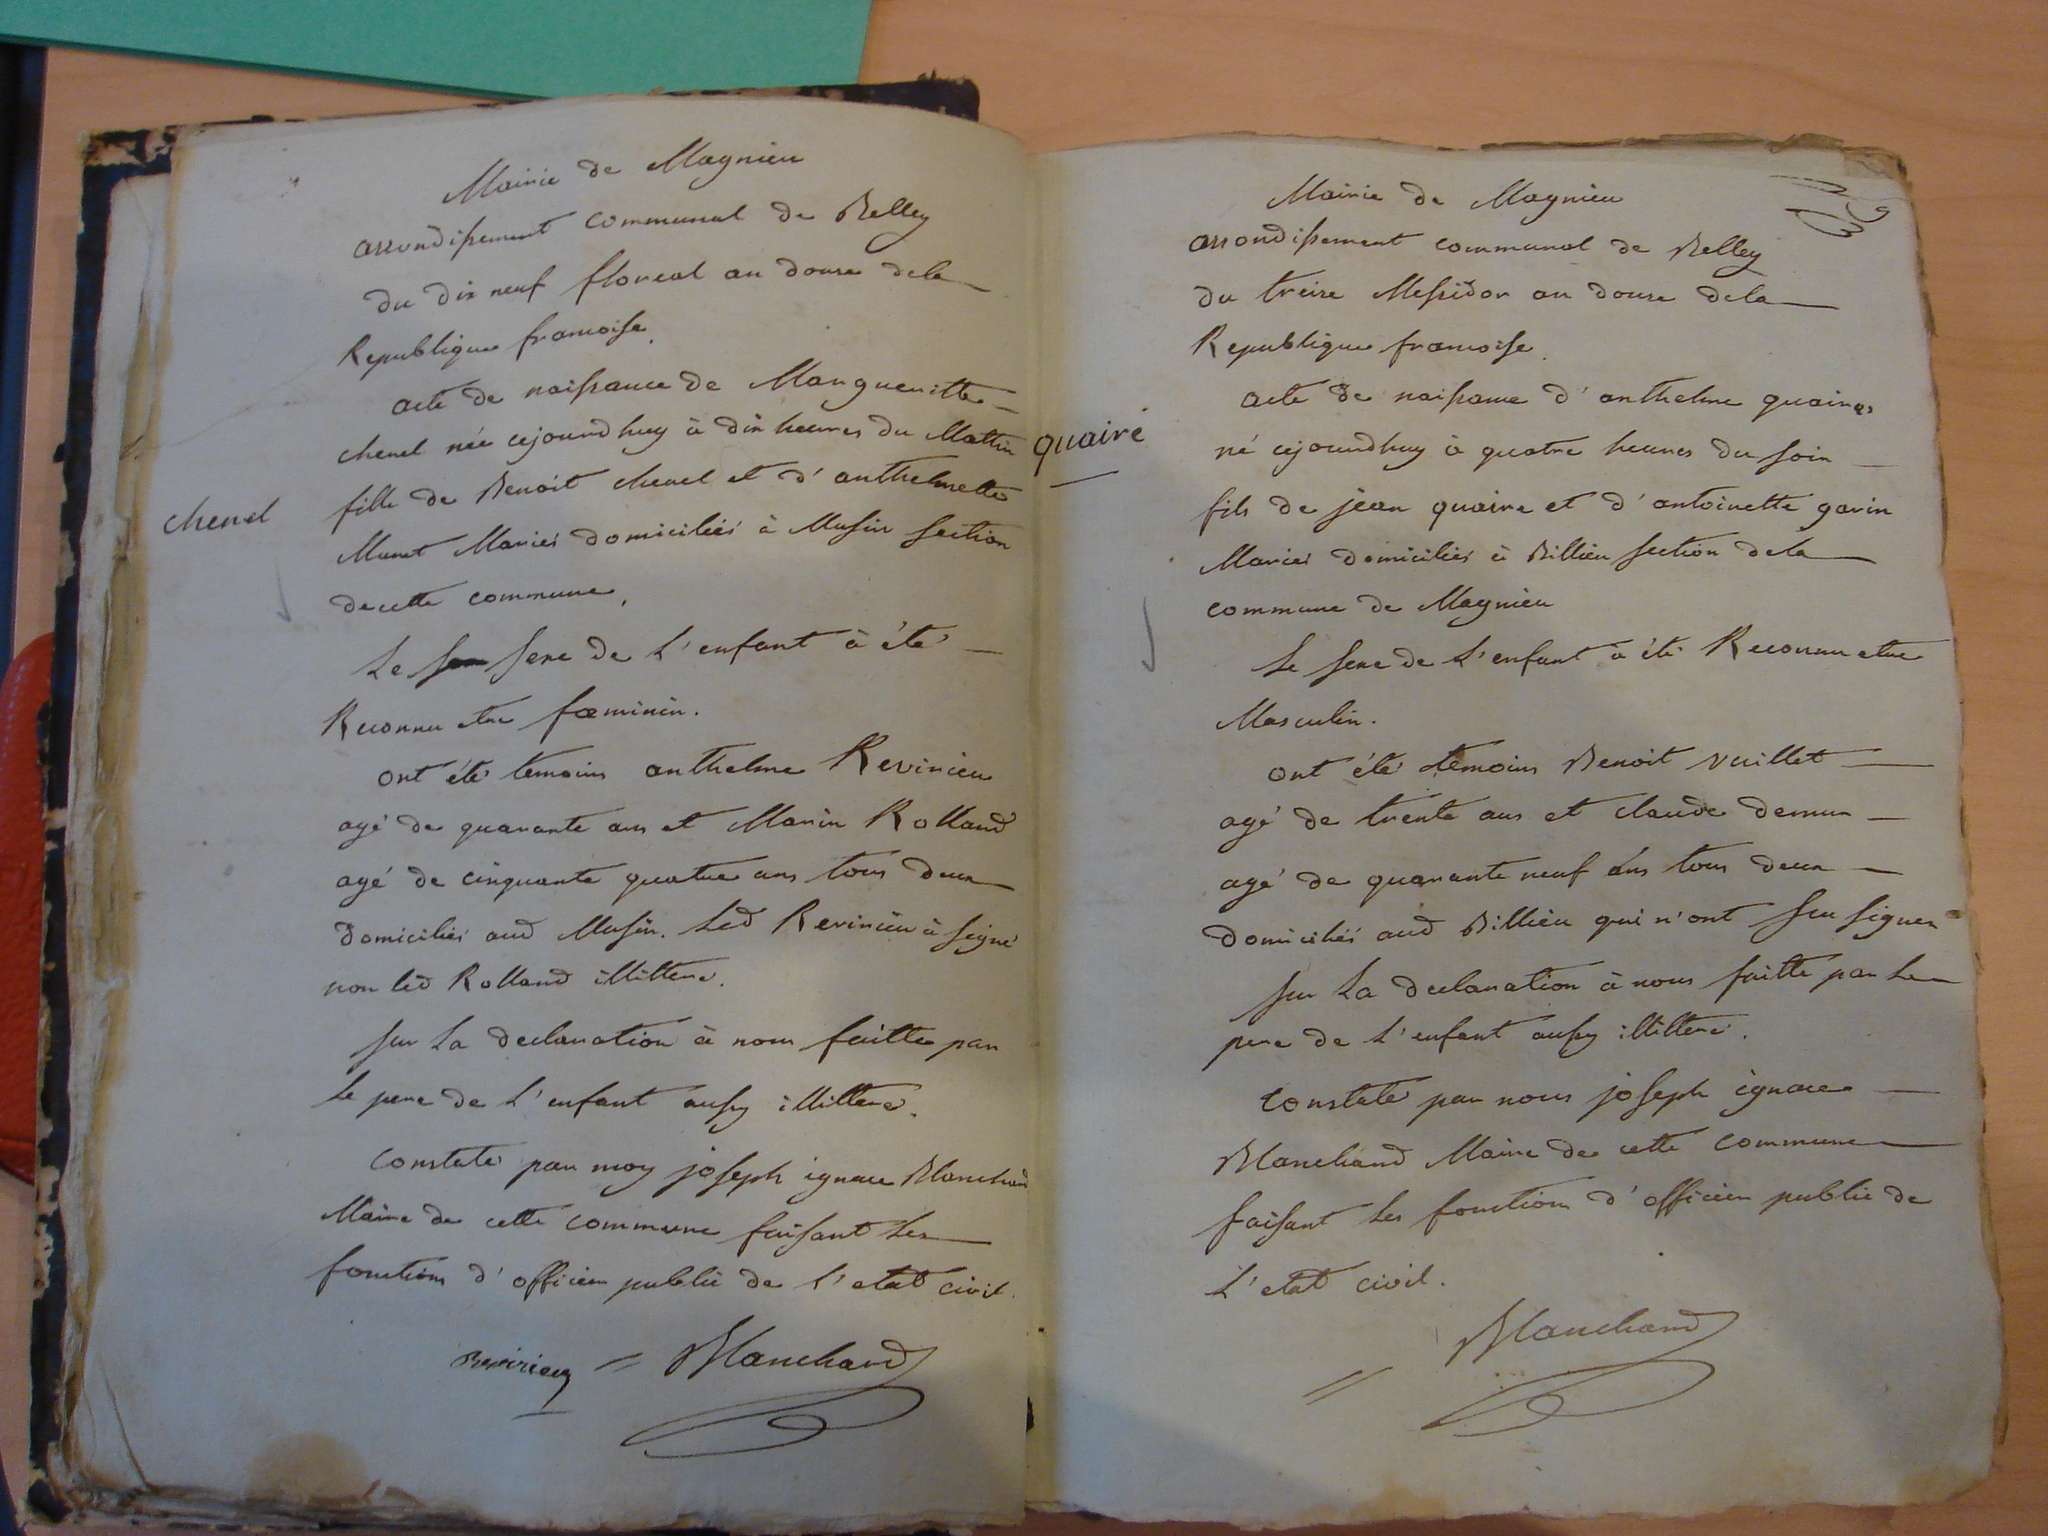 Mairie de Magnieu
arrondissement communal de Belley
du dix neuf floreal an douze dela
Republique francoise.
acte de naissance de Margueritte
chenel née cejourdhuy à dix heures du Mattin
fille de Benoit chenel et d'anthelmette
chenel
Munet Mariés domiciliés à Musin section
decette commune.
Le sexe de L'enfant à été
Reconnu etre fœminin.
ont été temoins anthelme Revirieu
agé de quarante ans et Marin Rolland
agé de cinquante quatre ans tous deux
domiciliés aud Musin. Led Revirieu à signé
non led Rolland illitteré.
sur La declaration à nous faitte par
Le pere de L'enfant aussy illitteré.
Constaté par moy joseph ignace Blanchard
Maire de cette commune faisant Les
fonctions d'officier public de L'etat civil.
Revirieu = Blanchard
Mairie de Magnieu
arrondissement communal de Belley
du treize Messidor an douze dela
Republique francoise.
acte de naissance d'anthelme quaire
quaire
né cejourdhuy à quatre heures du soir
fils de jean quaire et d'antoinette garin
Mariés domiciliés à Billieu section dela
commune de Magnieu
Le sexe de L'enfant à été Reconnu etre
Masculin.
ont été temoins Benoit vuillet
agé de trente ans et claude demur
agé de quarante neuf ans tous deux
domiciliés aud Billieu qui n'ont seu signer
sur La declaration à nous faitte par Le
pere de L'enfant aussy illitteré.
Constaté par nous joseph ignace
Blanchard Maire de cette commune
faisant Les fonctions d'officier public de
L'etat civil.
= Blanchard